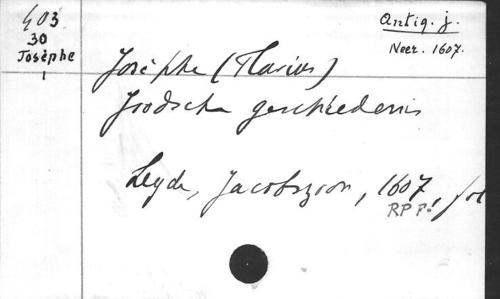 403
30
Josèphe
1
Antiq. j.
Neer. 1607.
Josèphe (Flavius)
Joodsche geschiedenis
Leyde, Jacobszoon, 1607, fol
RP F.